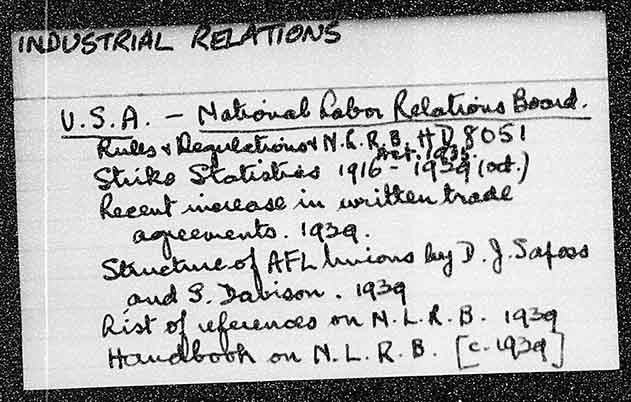 INDUSTRIAL RELATIONS
U.S.A. - National Labor Relations Board.
Rules & Regulations & N.L.R.B. HD 8051
Act. 1935.
Strike Statistics 1916 - 1939 (oct.)
Recent increase in written trade
agreements. 1939.
Structure of AFL Unions by D. J. Saposs
and S. Davison. 1939
List of references on N.L.R.B. 1939
Handbook on N.L.R.B. [c.1939]